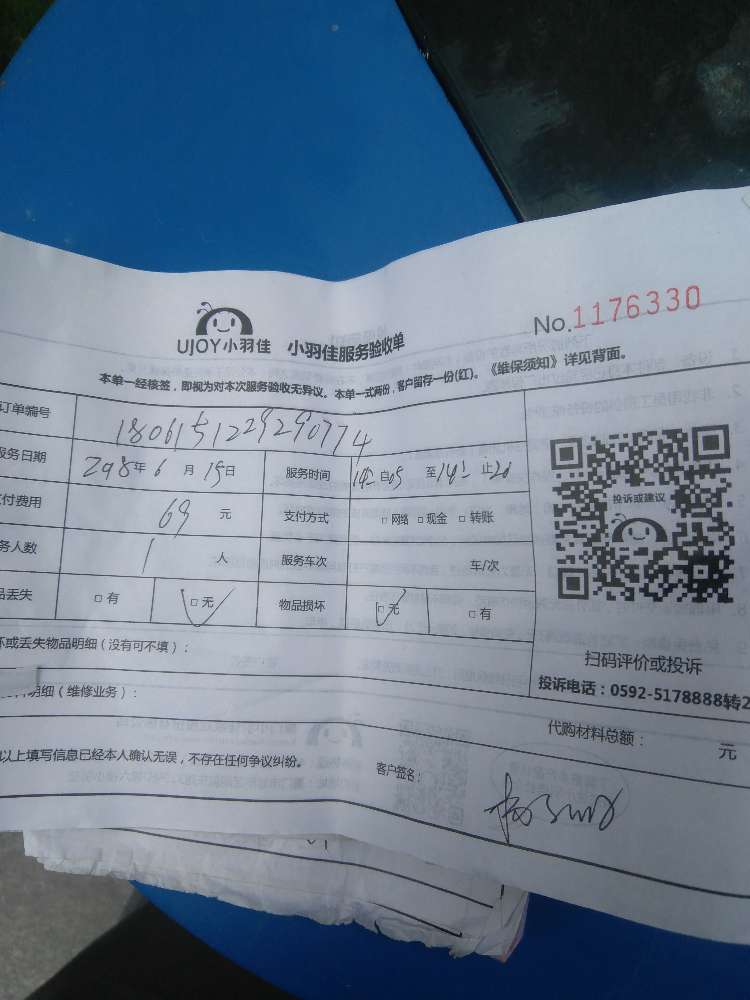 No.1176330
UJOY小羽佳 小羽佳服务验收单
本单一经核签，即视为对本次服务验收无异议。本单一式两份，客户留存一份(红)。《维保须知》详见背面。
订单编号 180615122929290774
服务日期 2018年6月15日 服务时间 自05 至 止20
支付费用 69 元 支付方式 □网络 □现金 □转账
务人数 1 人 服务车次 车/次
品丢失 □有 □无 物品损坏 □无 □有
投诉或建议
扫码评价或投诉
投诉电话：0592-5178888转2
坏或丢失物品明细（没有可不填）：
明细（维修业务）：
代购材料总额： 元
以上填写信息已经本人确认无误，不存在任何争议纠纷。
客户签名：